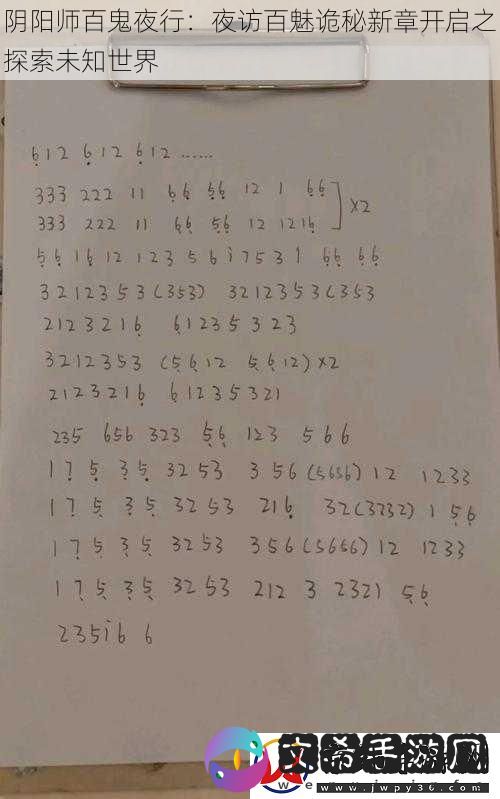 阴阳师百鬼夜行：夜访百魅诡秘新章开启之
探索未知世界
6̣12 6̣12 6̣12 ......
333 222 11 6̣6̣ 5̣6̣ 12 1 6̣6̣
333 222 11 6̣6̣ 5̣6̣ 12 1216̣ ]×2
5̣6̣ 16̣ 12 123 5 6 i 7 5 3 1 6̣6̣ 6̣6̣
3212353(353) 3212353(353
2123216̣ 6̣1235323
3212353 (5̣6̣12 5̣6̣12)×2
2123216̣ 6̣1235321
235 656 323 5̣6̣ 123 566
17̣5̣ 3̣5̣ 3253 356(5656)12 1233
17̣5̣ 3̣5̣ 3253 216̣ 32(3232)1 5̣6̣
17̣5̣ 3̣5̣ 3253 356(5656)12 1233
17̣5̣ 3̣5̣ 3253 212 3 2321 5̣6̣
235i6 6
www.jwpy36.com